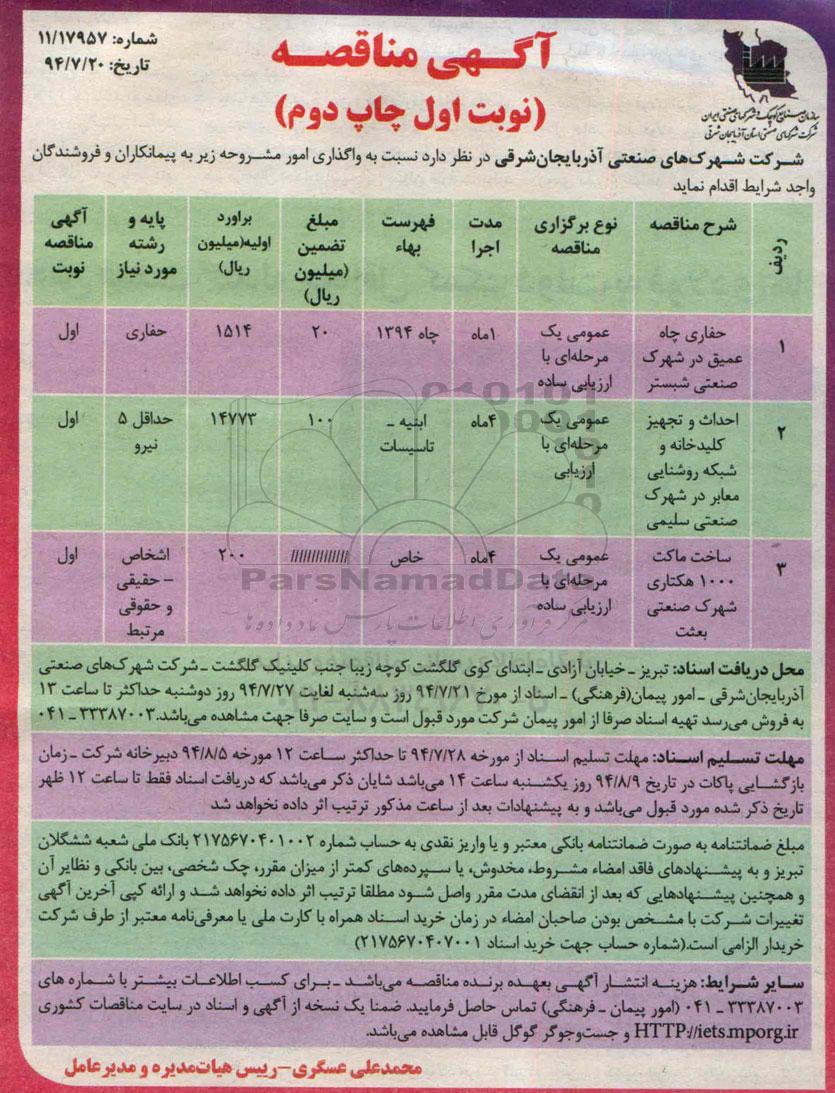 شماره: ۱۱/۱۷۹۵۷
تاریخ: ۹۴/۷/۲۰
آگهی مناقصه
(نوبت اول چاپ دوم)
سازمان صنایع کوچک و شهرکهای صنعتی ایران
شرکت شهرکهای صنعتی استان آذربایجان شرقی
شرکت شهرک‌های صنعتی آذربایجان‌شرقی در نظر دارد نسبت به واگذاری امور مشروحه زیر به پیمانکاران و فروشندگان
واجد شرایط اقدام نماید
ردیف | شرح مناقصه | نوع برگزاری مناقصه | مدت اجرا | فهرست بهاء | مبلغ تضمین (میلیون ریال) | براورد اولیه(میلیون ریال) | پایه و رشته مورد نیاز | آگهی مناقصه نوبت
۱ | حفاری چاه عمیق در شهرک صنعتی شبستر | عمومی یک مرحله‌ای با ارزیابی ساده | ۱ماه | چاه ۱۳۹۴ | ۲۰ | ۱۵۱۴ | حفاری | اول
۲ | احداث و تجهیز کلیدخانه و شبکه روشنایی معابر در شهرک صنعتی سلیمی | عمومی یک مرحله‌ای با ارزیابی | ۴ماه | ابنیه - تاسیسات | ۱۰۰ | ۱۴۷۷۳ | حداقل ۵ نیرو | اول
۳ | ساخت ماکت ۱۰۰۰ هکتاری شهرک صنعتی بعثت | عمومی یک مرحله‌ای با ارزیابی ساده | ۴ماه | خاص | ////////////// | ۲۰۰ | اشخاص - حقیقی و حقوقی مرتبط | اول
ParsNamadData
مرکز فرآوری اطلاعات پارس نماد داده ها
محل دریافت اسناد: تبریز ـ خیابان آزادی ـ ابتدای کوی گلگشت کوچه زیبا جنب کلینیک گلگشت ـ شرکت شهرک‌های صنعتی
آذربایجان‌شرقی ـ امور پیمان(فرهنگی) ـ اسناد از مورخ ۹۴/۷/۲۱ روز سه‌شنبه لغایت ۹۴/۷/۲۷ روز دوشنبه حداکثر تا ساعت ۱۳
به فروش می‌رسد تهیه اسناد صرفا از امور پیمان شرکت مورد قبول است و سایت صرفا جهت مشاهده می‌باشد.۳۳۳۸۷۰۰۳ ـ ۰۴۱
مهلت تسلیم اسناد: مهلت تسلیم اسناد از مورخه ۹۴/۷/۲۸ تا حداکثر ساعت ۱۲ مورخه ۹۴/۸/۵ دبیرخانه شرکت ـ زمان
بازگشایی پاکات در تاریخ ۹۴/۸/۹ روز یکشنبه ساعت ۱۴ می‌باشد شایان ذکر می‌باشد که دریافت اسناد فقط تا ساعت ۱۲ ظهر
تاریخ ذکر شده مورد قبول می‌باشد و به پیشنهادات بعد از ساعت مذکور ترتیب اثر داده نخواهد شد
مبلغ ضمانتنامه به صورت ضمانتنامه بانکی معتبر و یا واریز نقدی به حساب شماره ۲۱۷۵۶۷۰۴۰۱۰۰۲ بانک ملی شعبه ششگلان
تبریز و به پیشنهادهای فاقد امضاء مشروط، مخدوش، یا سپرده‌های کمتر از میزان مقرر، چک شخصی، بین بانکی و نظایر آن
و همچنین پیشنهادهایی که بعد از انقضای مدت مقرر واصل شود مطلقا ترتیب اثر داده نخواهد شد و ارائه کپی آخرین آگهی
تغییرات شرکت با مشخص بودن صاحبان امضاء در زمان خرید اسناد همراه با کارت ملی یا معرفی‌نامه معتبر از طرف شرکت
خریدار الزامی است.(شماره حساب جهت خرید اسناد ۲۱۷۵۶۷۰۴۰۷۰۰۱)
سایر شرایط: هزینه انتشار آگهی بعهده برنده مناقصه می‌باشد ـ برای کسب اطلاعات بیشتر با شماره های
۳۳۳۸۷۰۰۳ ـ ۰۴۱ (امور پیمان ـ فرهنگی) تماس حاصل فرمایید. ضمنا یک نسخه از آگهی و اسناد در سایت مناقصات کشوری
HTTP://iets.mporg.ir و جست‌وجوگر گوگل قابل مشاهده می‌باشد.
محمدعلی عسگری-رییس هیات‌مدیره و مدیرعامل